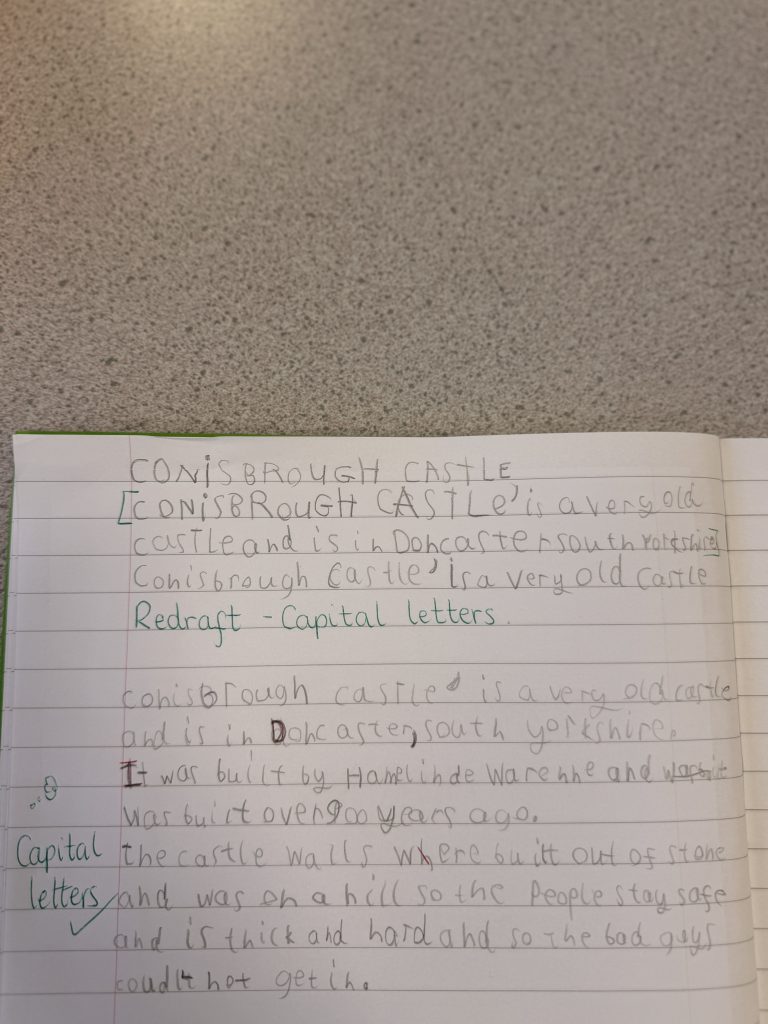 CONiSBROUGH CASTLE
[CONiSBROuGH CASTLe' is a very old
castle and is in Doncaster south Yorkshire]
Conisbrough Castle' is a very old castle
Redraft - Capital letters.
conisbrough castle' is a very old castle
and is in Doncaster, south yorkshire.
It was built by Hamelin de Warenne and it
was built over 900 years ago.
Capital the castle walls where built out of stone
letters and was on a hill so the People stay safe
and is thick and hard and so the bad guys
coudlt not get in.